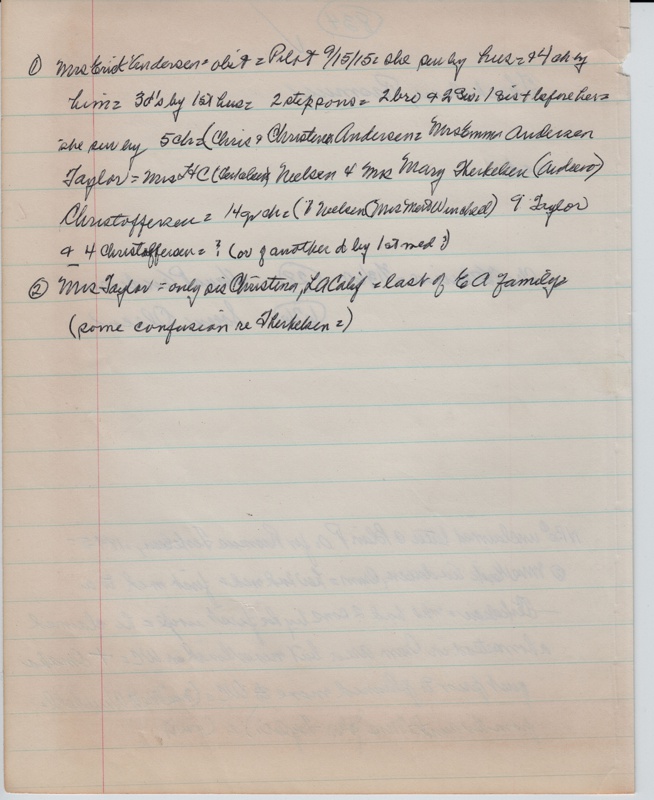 ① Mrs Erick Andersen = obit = Pilot 9/15/15 = she sur by hus = & 4 ch by
him = 3 d's by 1st hus = 2 stepsons = 2 bro & 2 sis, 1 sis + before her =
she sur by 5 ch = (Chris & Christena Andersen = Mrs Emma Andersen
Taylor = Mrs H C Nielsen & Mrs Mary Therkelsen (Andersen)
Christoffersen = 14 gr ch = (1 Nielsen (Mrs Winched) 9 Taylor
& 4 Christoffersen = ? (or of another d by 1st med?)
② Mrs Taylor = only sis Christina, LA Calif = last of E A family =
(some confusion re Therkelsen =)